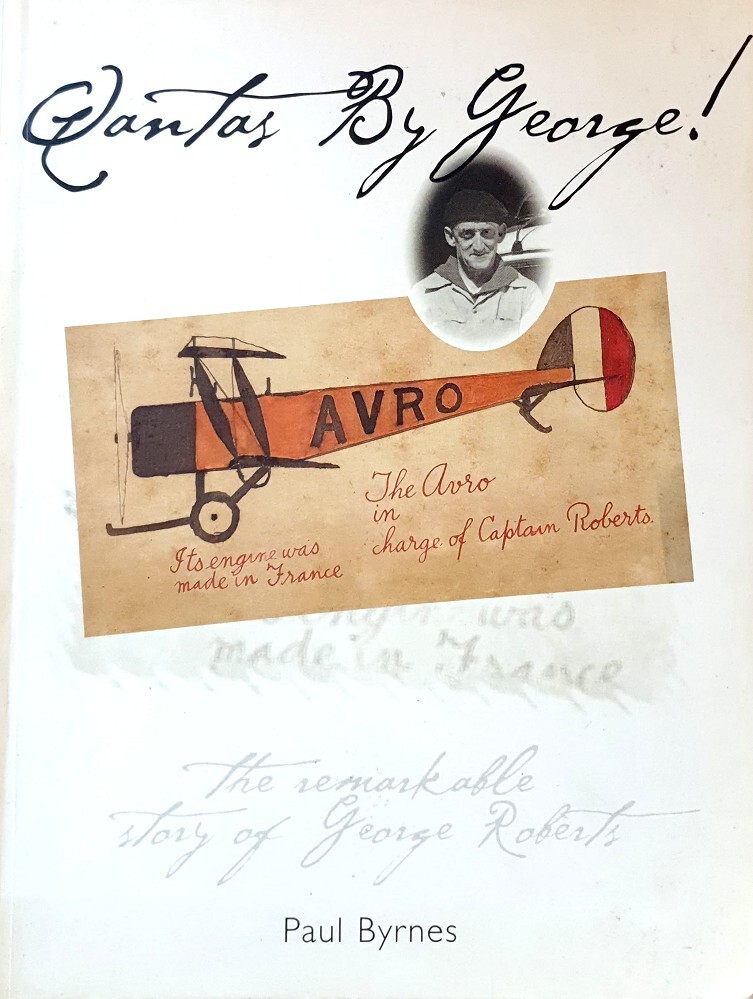 Qantas By George!
AVRO
The Avro
in
charge of Captain Roberts.
Its engine was
made in France
engine was
made in France
the remarkable
story of George Roberts
Paul Byrnes